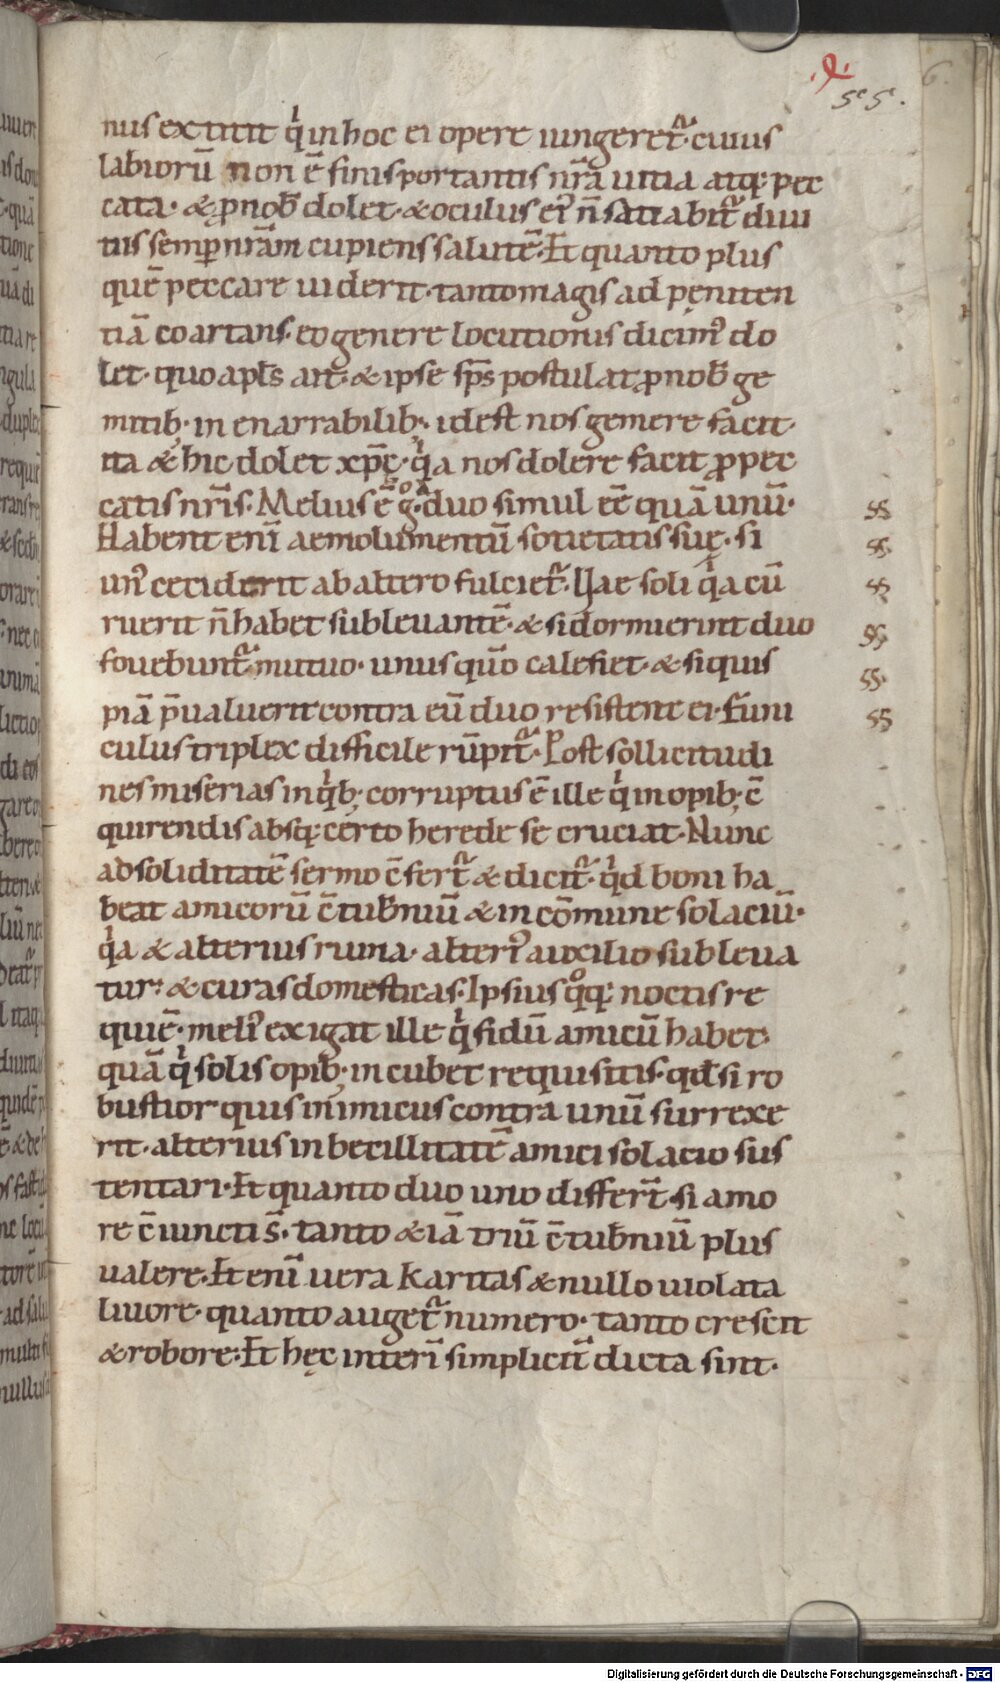 nus extitit qͥ in hoc ei opere iungeret᷑· cuius
labiorū non ē finis portantis nr̄a uitia atq; pec
cata· & ꝓ nob̄ dolet· & oculus ei᷒ n̄ satiabit᷑ diui
tiis semp̱ nr̄am cupiens salutē· Et quanto plus
quē peccare uiderit· tanto magis ad pęniten
tiā coartans· eo genere locutionis dicim᷒ do
let· quo apl̄s ait· & ipse sp̄s postulat ꝓ nob̄ ge
mitib; in enarrabilib;· id est nos gemere facit·
ita & hic dolet xp̄ę· qͥa nos dolere facit ꝓ pec
catis nr̄is· Melius ē gͦ· duo simul eē quā unū·
Habent enī aemolumentū societatis suę· si
un᷒ ceciderit ab altero fulciet᷑· Uae soli qͥa cū
ruerit n̄ habet subleuantē· & si dormierint duo
fouebunt᷑ mutuo· unus quō calefiet· & si quis
piā p̄ualuerit contra eū duo resistent ei· Funi
culus triplex difficile rūpit᷑· Post sollicitudi
nes miserias in qͥb; corruptus ē ille qͥ in opib; c̄
quirendis absq; certo herede se cruciat· Nunc
ad soliditatē sermo c̄fert᷑ & dicit᷑· qͥd boni ha
beat amicorū c̄tub̄niū & in cōmune solaciū·
qͥa & alterius ruina· alteri᷒ auxilio subleua
tur· & curas domesticas· Ipsius qͦq; noctis re
quiē· meli᷒ exigat ille qͥ fidū amicū habet·
quā qͥ solis opib; incubet requisitis· qđ si ro
bustior quis inimicus contra unū surrexe
rit· alterius inbecillitatē amici solacio sus
tentari· Et quanto duo uno differt᷑· si amo
re c̄iuncti s̄· tanto & iā triū c̄tub̄niū plus
ualere· Et enī uera karitas & nullo uiolata
liuore· quanto auget᷑ numero· tanto crescit
& robore· Et hęc interī simplicit̄ dicta sint·
ss
ss·
ss
ss
ss·
ss
6.
Digitalisierung gefördert durch die Deutsche Forschungsgemeinschaft - DFG